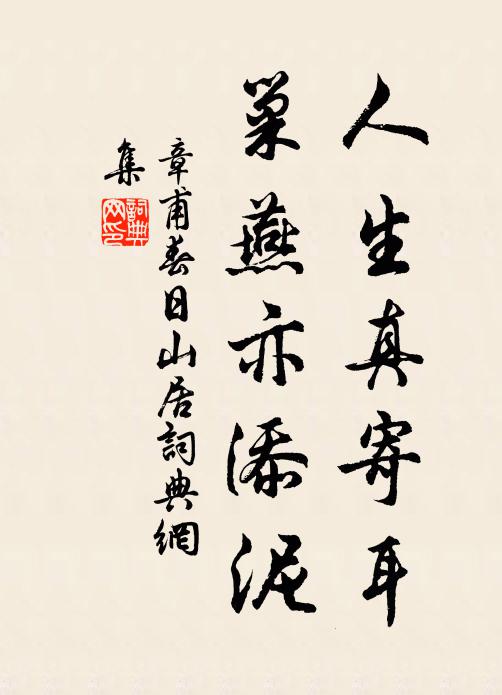 人生真寄耳
巢燕亦添泥
章甫春日山居詞典網
集
詞典
网印